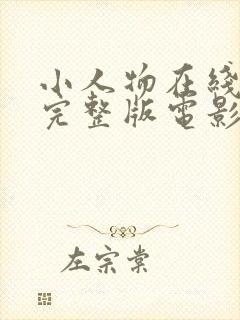 小人物在綫
完整版電影
左宗棠